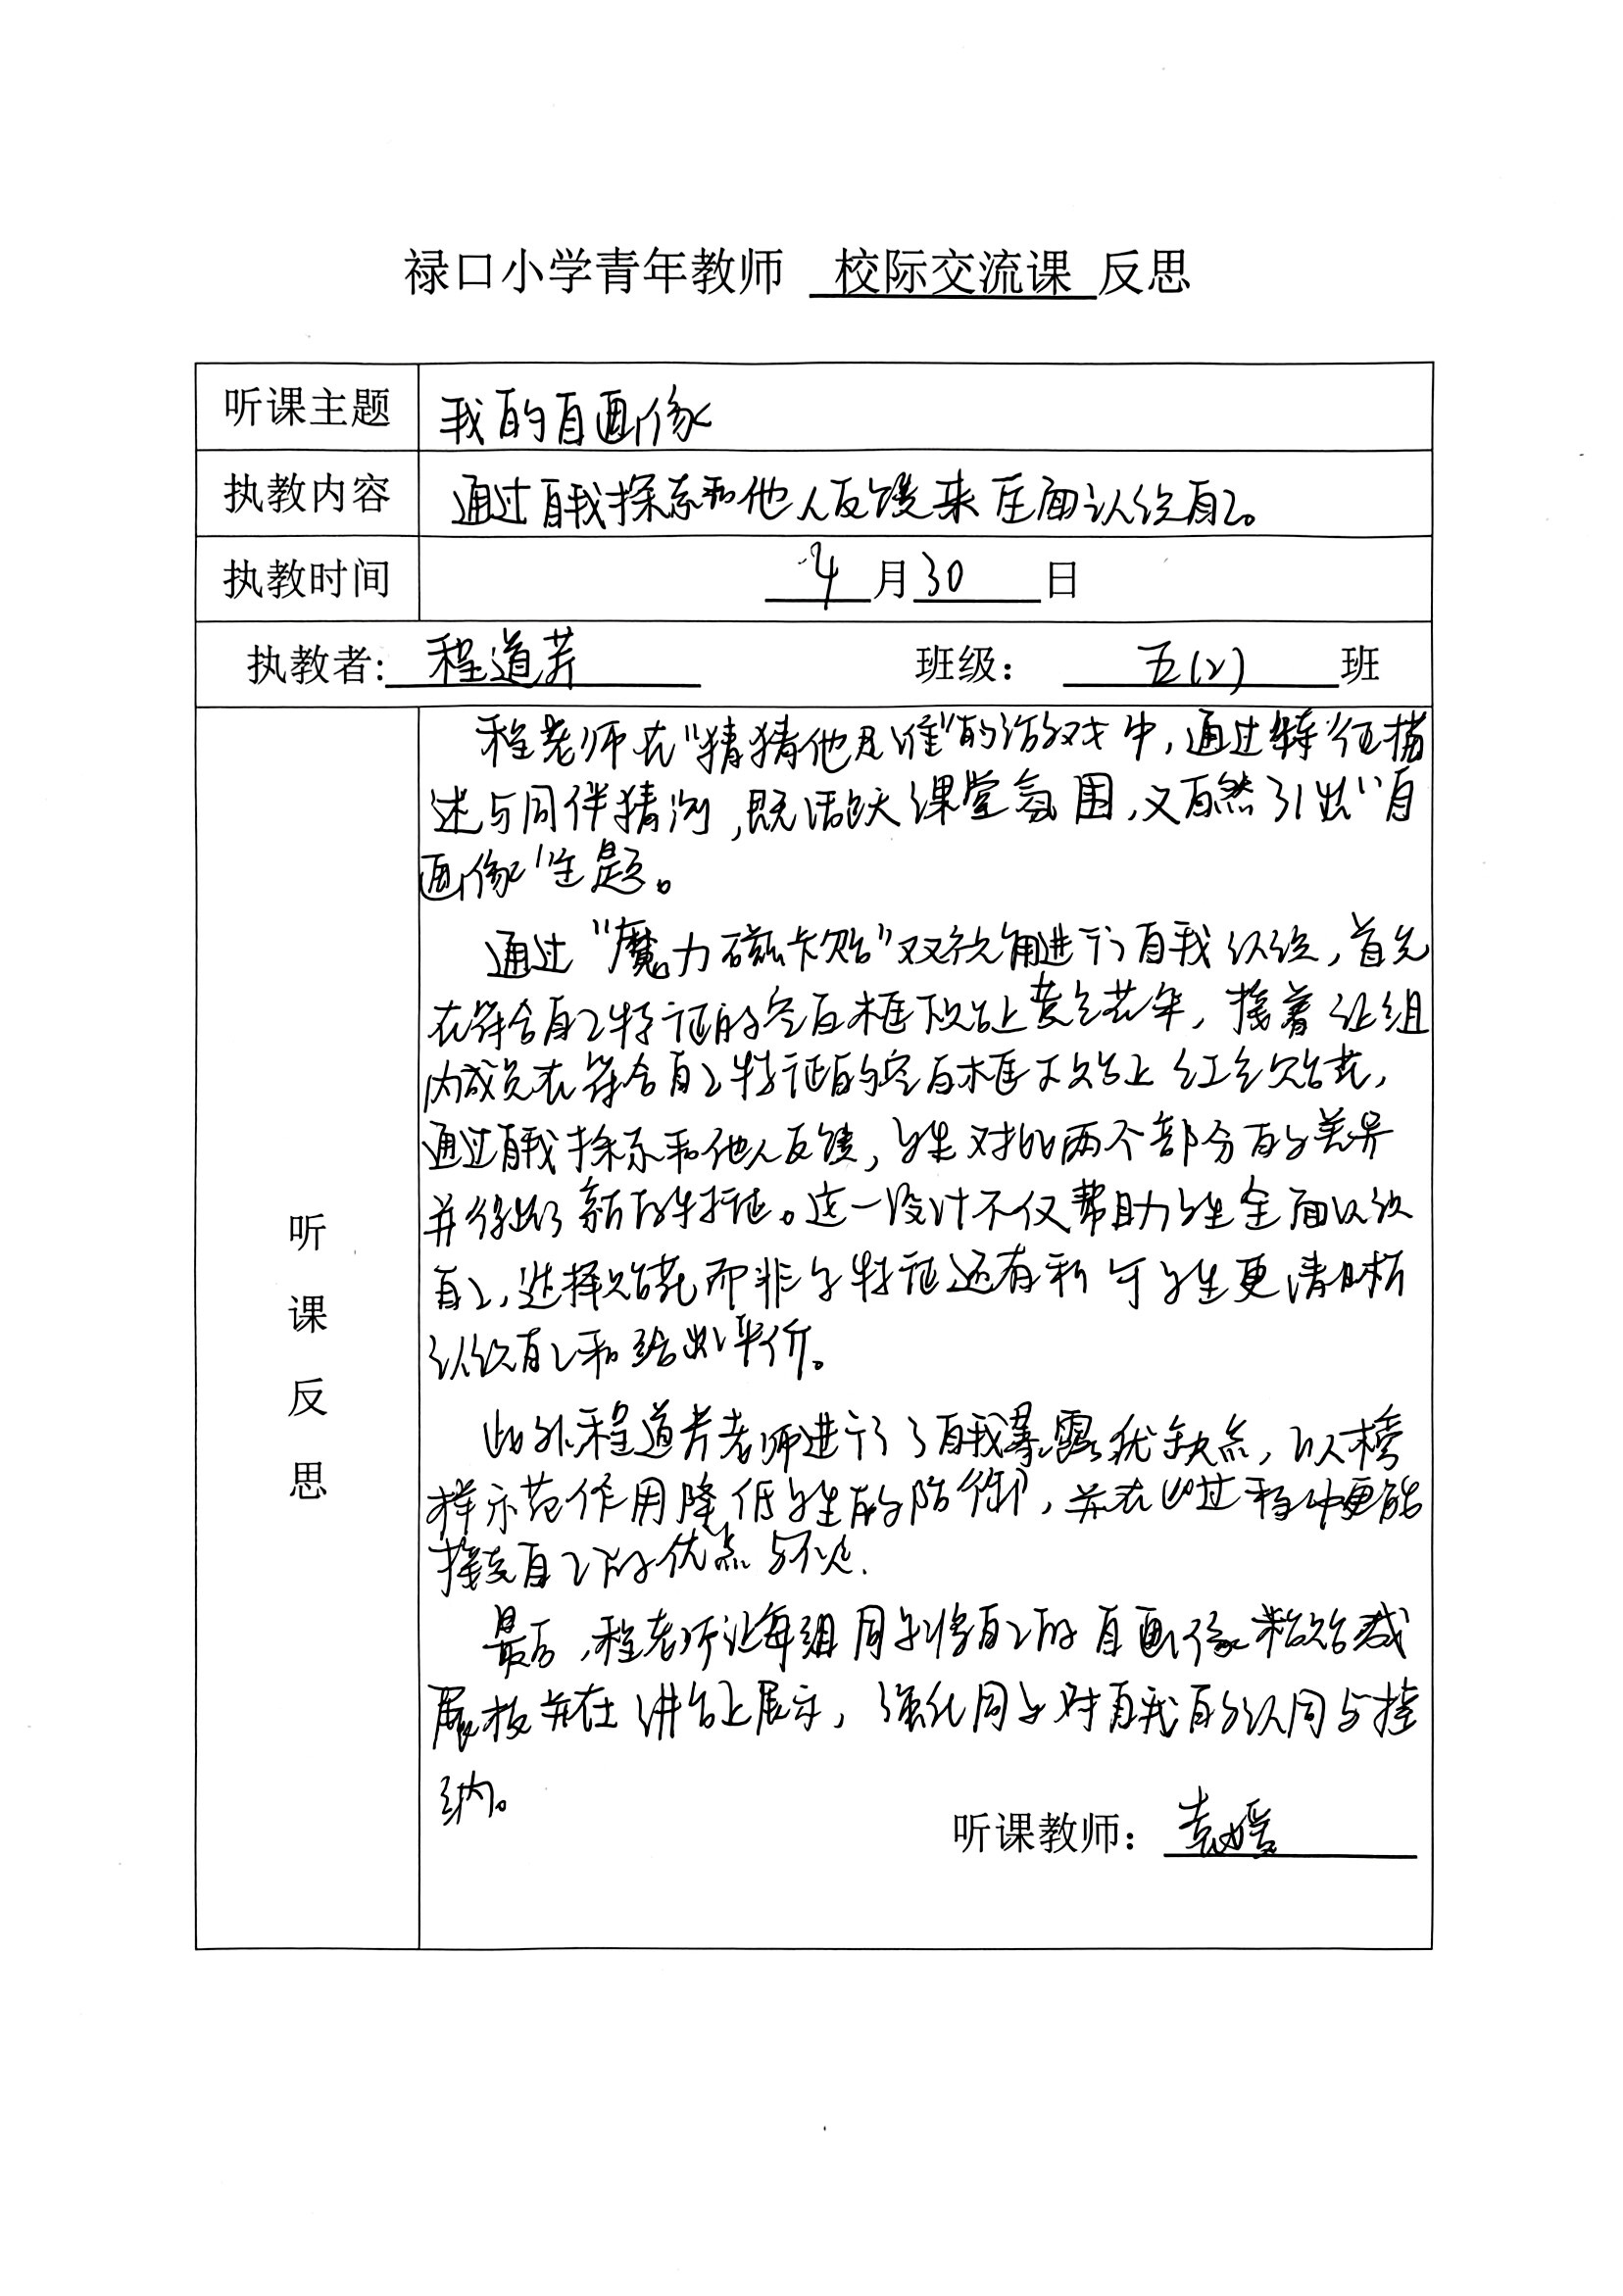 禄口小学青年教师 校际交流课 反思
听课主题 我的自画像
执教内容 通过自我探索和他人反馈来全面认识自己。
执教时间 4月30日
执教者: 程道芳 班级: 五(2)班
听课反思
程老师在“猜猜他是谁”的游戏中,通过特征描
述与同伴猜测,既活跃课堂氛围,又自然引出“自
画像”主题。
通过“魔力磁卡贴”双视角进行自我认识,首先
在符合自己特征的空白框下贴上黄色花朵,接着让组
内成员在符合自己特征的空白框下贴上红色贴花,
通过自我探索和他人反馈,学生对比两个部分的差异
并得出了新的特征。这一设计不仅帮助学生全面认识
自己,选择贴花而非写特征还有利于学生更清晰
认识自己和给出评价。
此外程道芳老师进行了自我暴露优缺点,以榜
样示范作用降低学生的防御,并在此过程中更能
接受自己的优点与不足.
最后,程老师让每组同学将自己的自画像粘贴成
展板并在讲台上展示,强化同学对自我的认同与接
纳。
听课教师: 袁媛